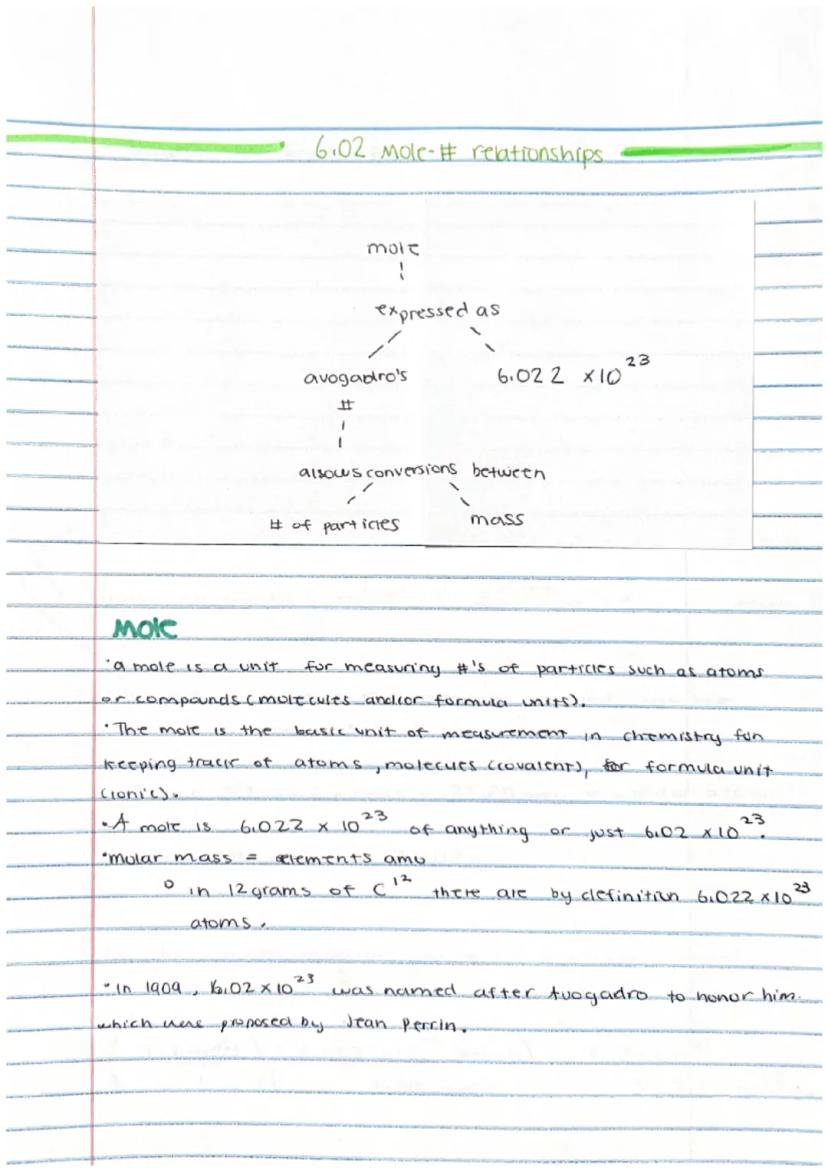 6.02 Mole-# relationships
mole
expressed as
avogadro's 6.022 x10^23
#
allows conversions between
# of particles mass
Mole
·a mole is a unit for measuring #'s of particles such as atoms
or compounds (molecules and/or formula units).
·The mole is the basic unit of measurement in chemistry for
keeping track of atoms, molecues (covalent), for formula unit
(ionic).
·A mole is 6.022 x 10^23 of anything or just 6.02 x10^23.
·molar mass = elements amu
o in 12 grams of C^12 there are by definition 6.022 x10^23
atoms.
·In 1909, 6.02 x10^23 was named after Avogadro to honor him.
which were proposed by Jean Perrin.